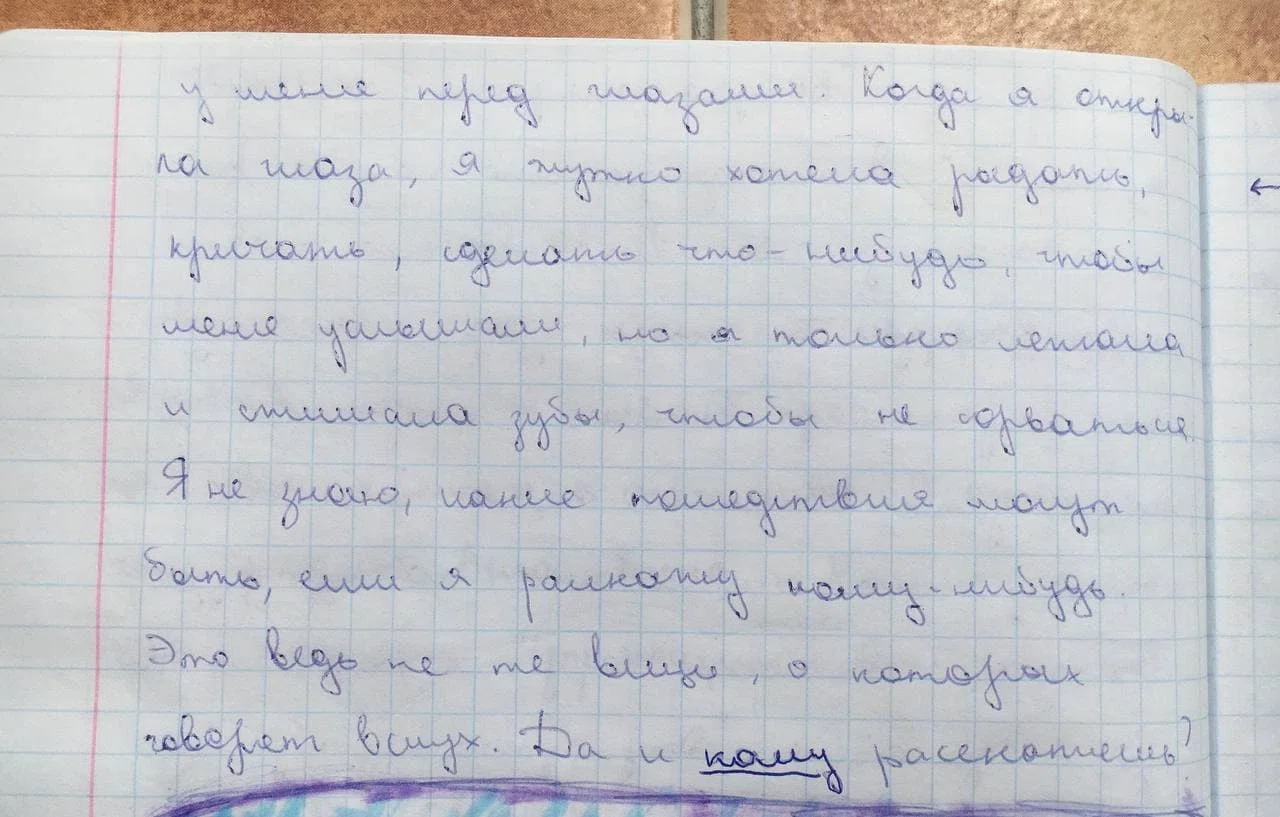 у меня перед глазами. Когда я откры-
ла глаза, я жутко хотела рыдать,
кричать, сделать что-нибудь, чтобы
меня услышали, но я только лежала
и сжимала зубы, чтобы не сорваться.
Я не знаю, какие последствия могут
быть, если я расскажу кому-нибудь.
Это ведь не те вещи, о которых
говорят вслух. Да и кому расскажешь?